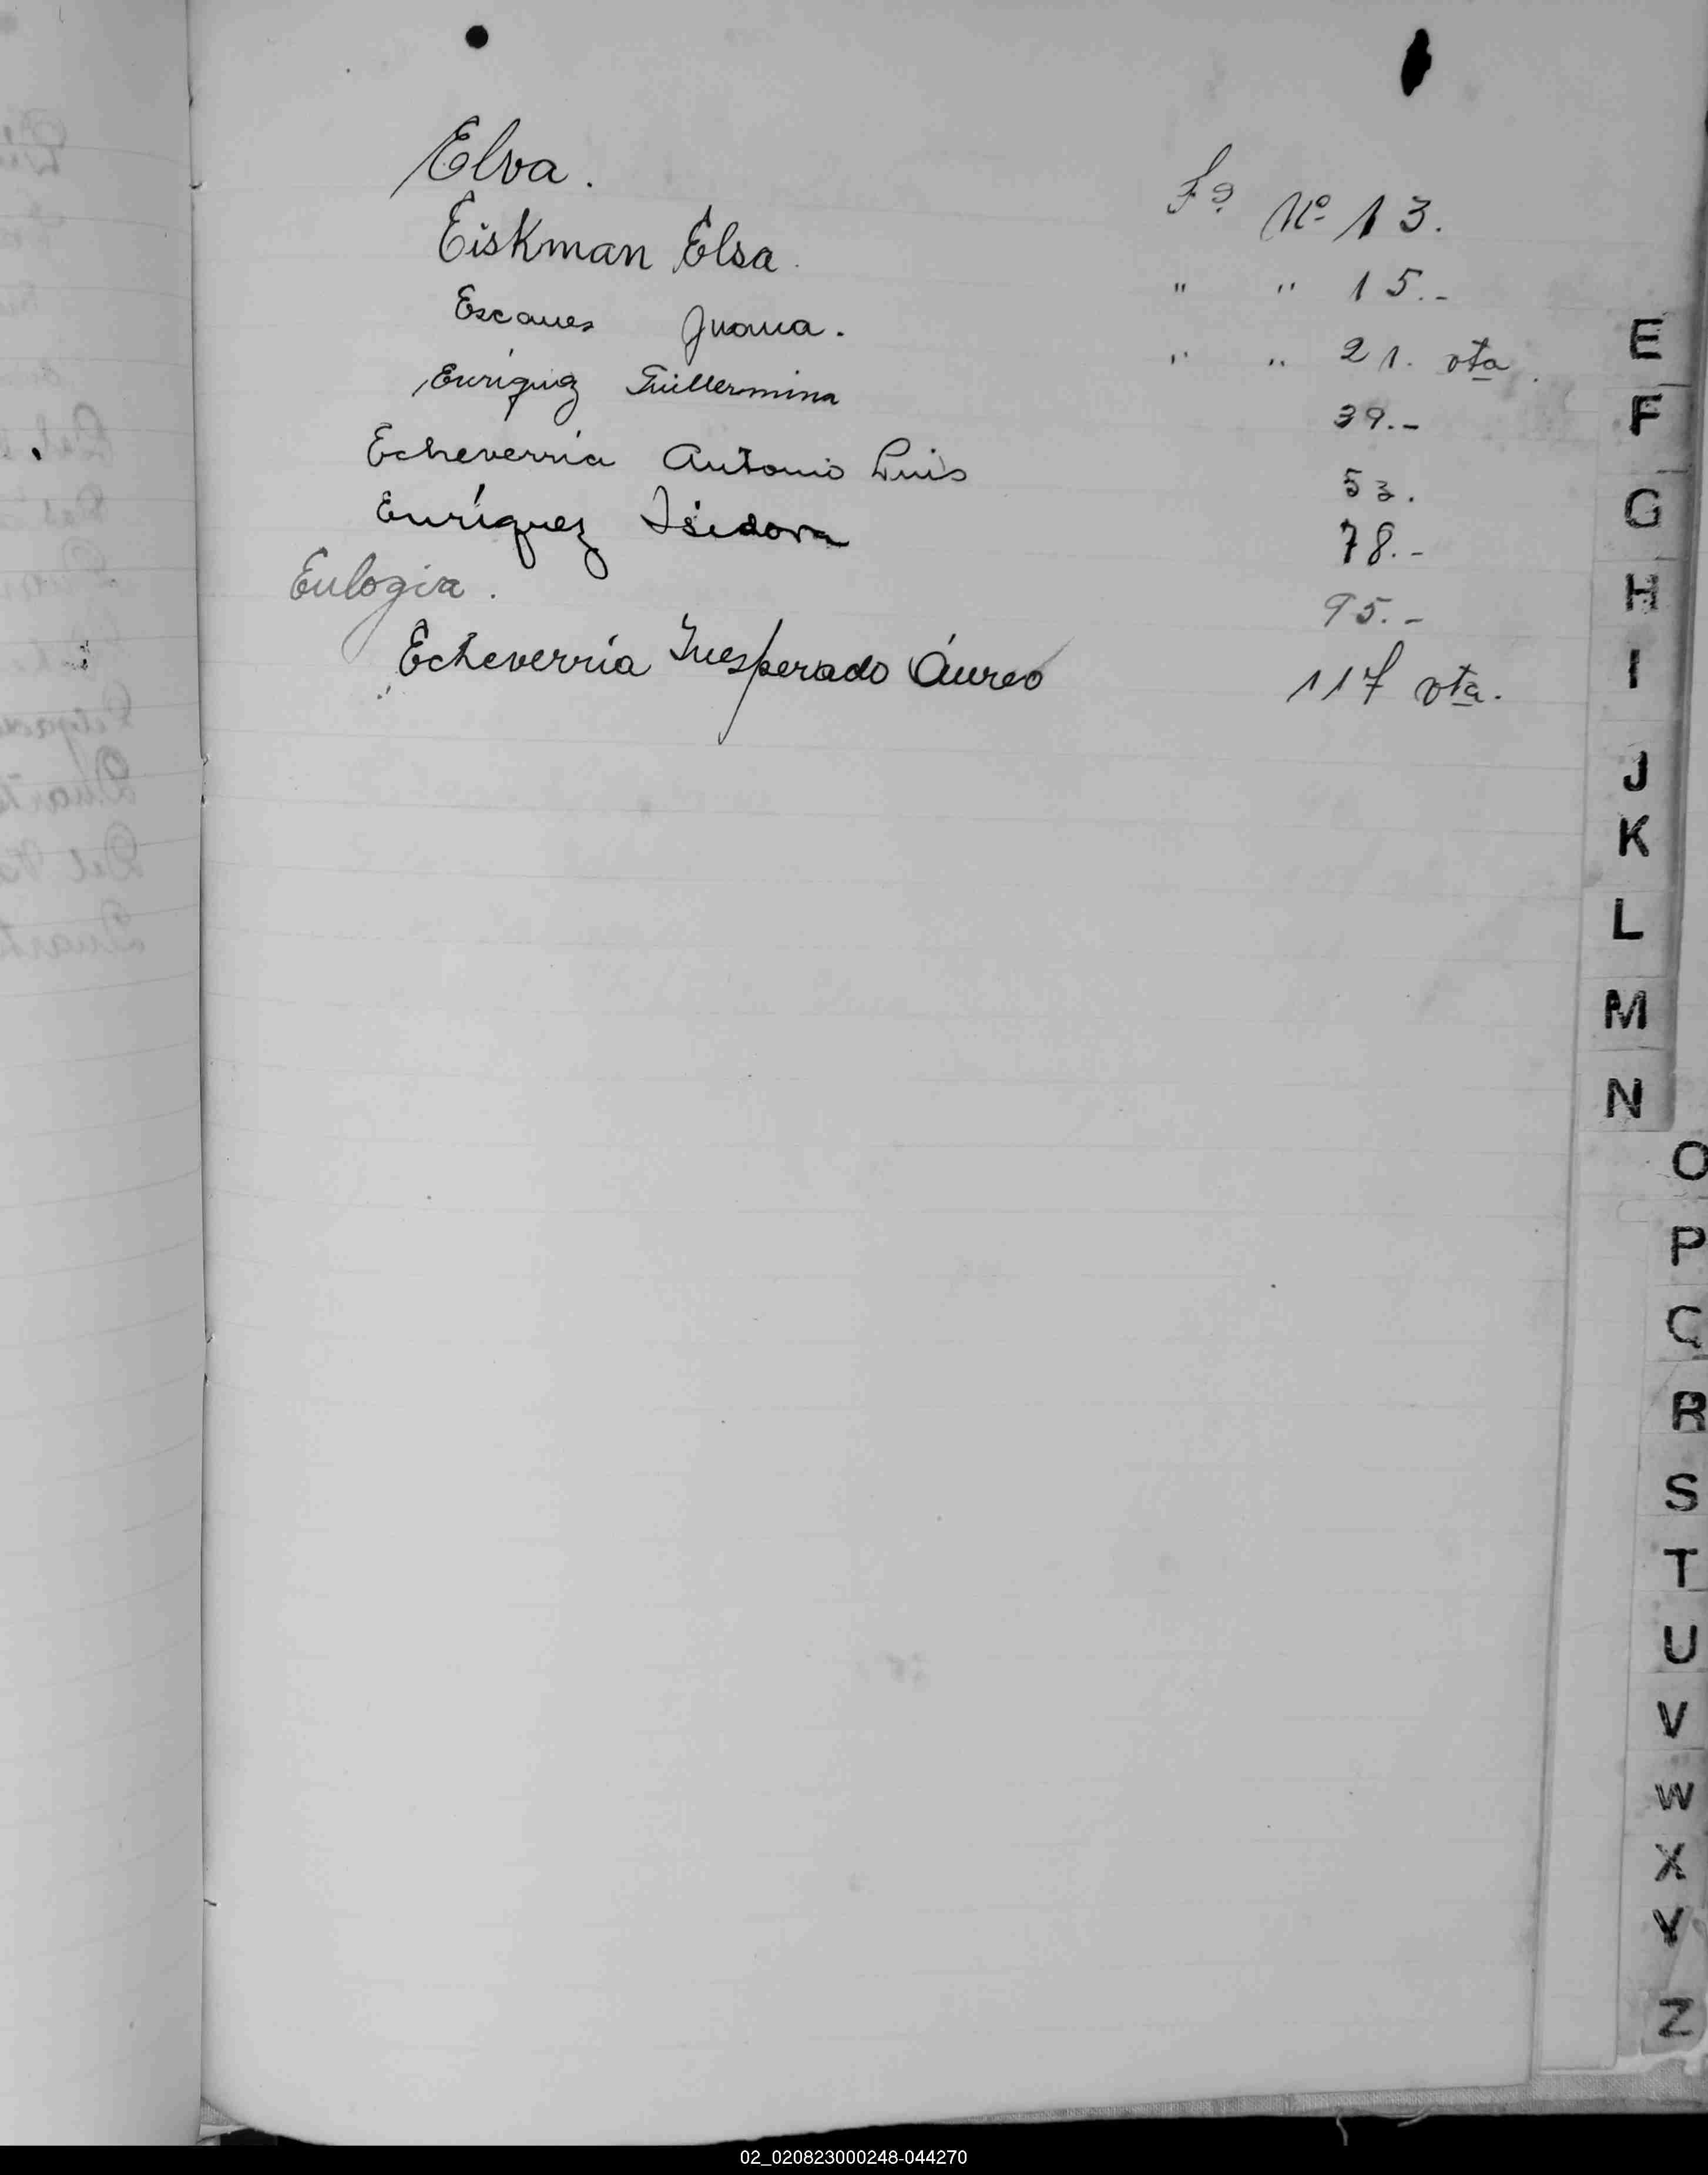 Elva. Fº Nº 13.
Eiskman Elsa. " " 15.-
Escaues Juana. " " 21. vta.
Enríquez Guillermina 39.-
Echeverria Antonio Luis 53.
Enríquez Isidora 78.-
Eulogia. 95.-
Echeverría Inesperado Áureo 117 vta.
E
F
G
H
I
J
K
L
M
N
O
P
Q
R
S
T
U
V
W
X
Y
Z
02_020823000248-044270